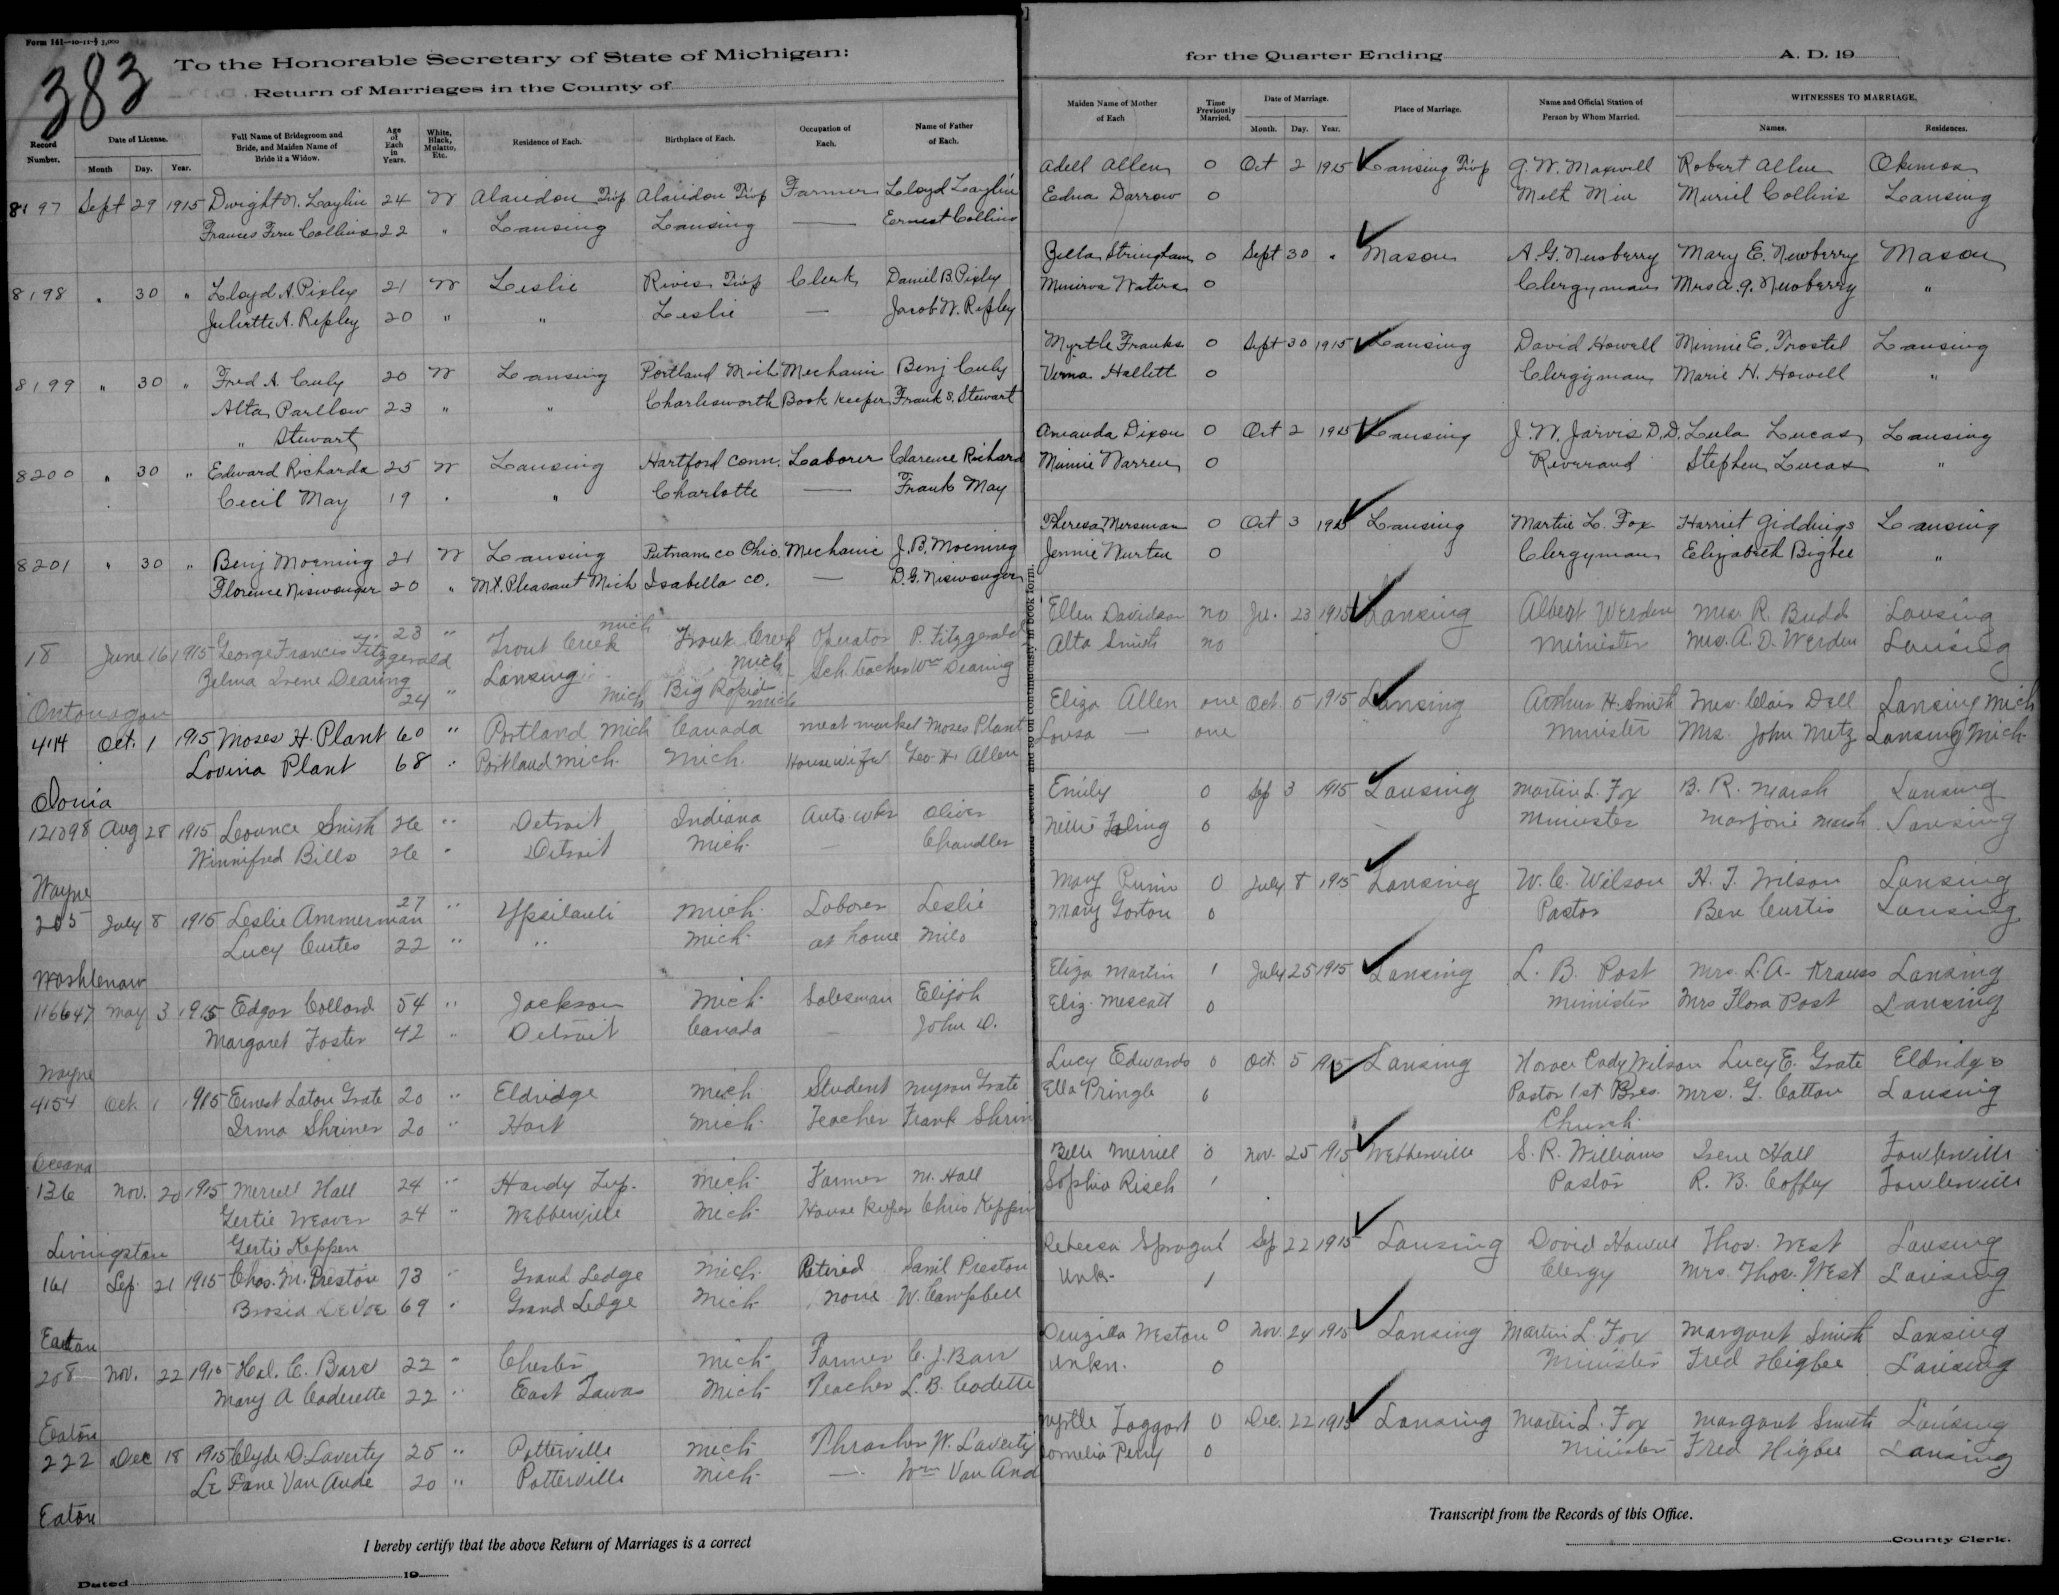 Form 141—10-11-5 3,000
383
To the Honorable Secretary of State of Michigan:
Return of Marriages in the County of
Record Number.
Date of License.
Month Day. Year.
Full Name of Bridegroom and Bride, and Maiden Name of Bride if a Widow.
Age of Each in Years.
White, Black, Mulatto, Etc.
Residence of Each.
Birthplace of Each.
Occupation of Each.
Name of Father of Each.
8197 Sept 29 1915 Dwight N. Laylin 24 W Alaiedon Twp Alaiedon Twp Farmer Lloyd Laylin
Frances Fern Collins 22 " Lansing Lansing — Ernest Collins
8198 " 30 " Lloyd A. Pixley 21 W Leslie Rives Twp Clerk Daniel B. Pixley
Juliette A. Ripley 20 " " Leslie — Jacob W. Ripley
8199 " 30 " Fred A. Culy 20 W Lansing Portland Mich Mechanic Benj Culy
Alta Parllow 23 " " Charlesworth Book Keeper Frank S. Stewart
" Stewart
8200 " 30 " Edward Richards 25 W Lansing Hartford Conn. Laborer Clarence Richard
Cecil May 19 " " Charlotte — Frank May
8201 " 30 " Benj Moening 21 W Lansing Putnam co Ohio. Mechanic J. B. Moening
Florence Niswonger 20 " Mt. Pleasant Mich Isabella co. — D. G. Niswonger
18 June 16 1915 George Francis Fitzgerald 23 " Trout Creek Mich Trout Creek Mich Operator P. Fitzgerald
Zelma Irene Dearing 24 " Lansing Mich Big Rapids Mich Sch. teacher Wm Dearing
Ontonagon
4114 Oct. 1 1915 Moses H. Plant 60 " Portland Mich Canada meat market Moses Plant
Lovina Plant 68 " Portland Mich. Mich. Housewife Geo. H. Allen
Ionia
121398 Aug 28 1915 Leounce Smith 26 " Detroit Indiana Auto. wkr Oliver
Winnifred Bills 26 " Detroit Mich. — Chandler
Wayne
205 July 8 1915 Leslie Ammerman 27 " Ypsilanti Mich. Laborer Leslie
Lucy Curtes 22 " " Mich. at home Milo
Washtenaw
116647 May 3 1915 Edgar Collard 54 " Jackson Mich. Salesman Elijah
Margaret Foster 42 " Detroit Canada — John D.
Wayne
4154 Oct. 1 1915 Ernest Laton Grate 20 " Eldridge Mich Student Myron Grate
Irma Shriner 20 " Hart Mich. Teacher Frank Shrin
Oceana
136 Nov. 20 1915 Merrell Hall 24 " Handy Twp. Mich. Farmer M. Hall
Gertie Weaver 24 " Webberville Mich. House keeper Chris Keppen
Gertie Keppen
Livingston
161 Sep 21 1915 Chas. M. Preston 73 " Grand Ledge Mich Retired Saml Preston
Brosia DeVoe 69 " Grand Ledge Mich. None W. Campbell
Eaton
208 Nov. 22 1915 Hal. C. Barr 22 " Chester Mich. Farmer C. J. Barr
Mary A Caderette 22 " East Tawas Mich Teacher L. B. Cadette
Eaton
222 Dec 18 1915 Clyde D. Laverty 25 " Potterville Mich Thrasher W. Laverty
Le Fane Van Aude 20 " Potterville Mich. — Wm Van And
Eaton
I hereby certify that the above Return of Marriages is a correct
Dated 19
for the Quarter Ending A. D. 19
Maiden Name of Mother of Each
Time Previously Married.
Date of Marriage.
Month. Day. Year.
Place of Marriage.
Name and Official Station of Person by Whom Married.
WITNESSES TO MARRIAGE.
Names. Residences.
Adell Allen 0 Oct 2 1915 Lansing Twp G. W. Maxwell Robert Allen Okemos
Edna Darrow 0 Meth Min Muriel Collins Lansing
Zella Stringham 0 Sept 30 " Mason A. G. Newberry Mary E. Newberry Mason
Minirva Waters 0 Clergyman Mrs A. G. Newberry "
Myrtle Franks 0 Sept 30 1915 Lansing David Howell Minnie E. Trostel Lansing
Verna Hallett 0 Clergyman Marie H. Howell "
Amanda Dixon 0 Oct 2 1915 Lansing J. W. Jarvis D.D. Lula Lucas Lansing
Minnie Warren 0 Reverand Stephen Lucas "
Theresa Mersman 0 Oct 3 1915 Lansing Martin L. Fox Harriet Giddings Lansing
Jennie Wurten 0 Clergyman Elizabeth Bigbee "
Ellen Davidson no Ju. 23 1915 Lansing Albert Werden Mrs. R. Budd Lansing
Alta Smith no Minister Mrs. A. D. Werden Lansing
Eliza Allen one Oct. 5 1915 Lansing Arthur H. Smith Mrs. Clair Dell Lansing Mich
Lovsa — one Minister Mrs. John Metz Lansing Mich.
Emily 0 Sep 3 1915 Lansing Martin L. Fox B. R. Marsh Lansing
Nellie Faling 0 Minister Marjorie Marsh Lansing
Mary Quinn 0 July 8 1915 Lansing W. C. Wilson H. T. Wilson Lansing
Mary Gorton 0 Pastor Ben Curtis Lansing
Eliza Martin 1 July 25 1915 Lansing L. B. Post Mrs. L. A. Krauss Lansing
Eliz. Mescatt 0 Minister Mrs Flora Post Lansing
Lucy Edwards 0 Oct. 5 1915 Lansing Horace Cady Wilson Lucy E. Grate Eldridge
Ella Pringle 0 Pastor 1st Pres. Mrs. G. Cattou Lansing
Church.
Belle Merriel 0 Nov. 25 1915 Webberville S. R. Williams Irene Hall Fowlerville
Sophia Risch 1 Pastor R. B. Coffey Fowlerville
Rebecca Sprague 1 Sep 22 1915 Lansing David Howell Thos. West Lansing
Unk. 1 Clergy Mrs. Thos. West Lansing
Druzilla Weston 0 Nov. 24 1915 Lansing Martin L. Fox Margaret Smith Lansing
Unkn. 0 Minister Fred Higbee Lansing
Myrtle Taggart 0 Dec. 22 1915 Lansing Martin L. Fox Margaret Smith Lansing
Cornelia Perry 0 Minister Fred Higbee Lansing
Transcript from the Records of this Office.
County Clerk.